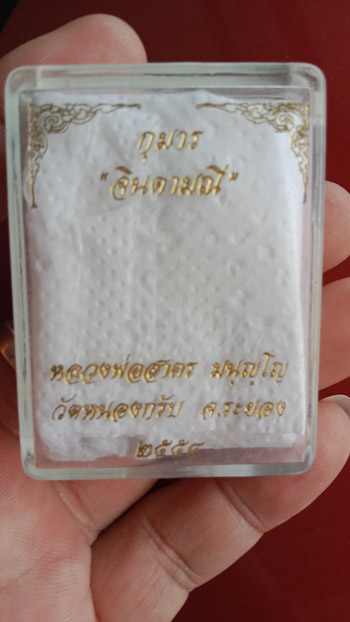 กุมาร
"จินดามณี"
หลวงพ่อสาคร มนุญฺโญ
วัดหนองกรับ จ.ระยอง
๒๕๕๔